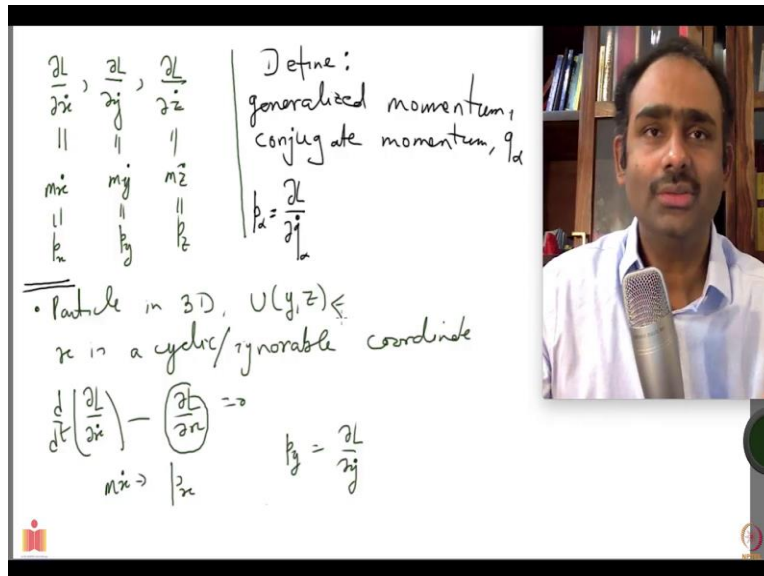 ∂L/∂ẋ , ∂L/∂ẏ , ∂L/∂ż
|| || ||
mẋ mẏ mż
|| || ||
p_x p_y p_z
Define:
generalized momentum,
conjugate momentum, q_α
p_α = ∂L/∂q̇_α
• Particle in 3D, U(y,z) ≤
x is a cyclic/ignorable coordinate
d/dt (∂L/∂ẋ) – (∂L/∂x) = 0
mẋ → p_x
p_y = ∂L/∂ẏ